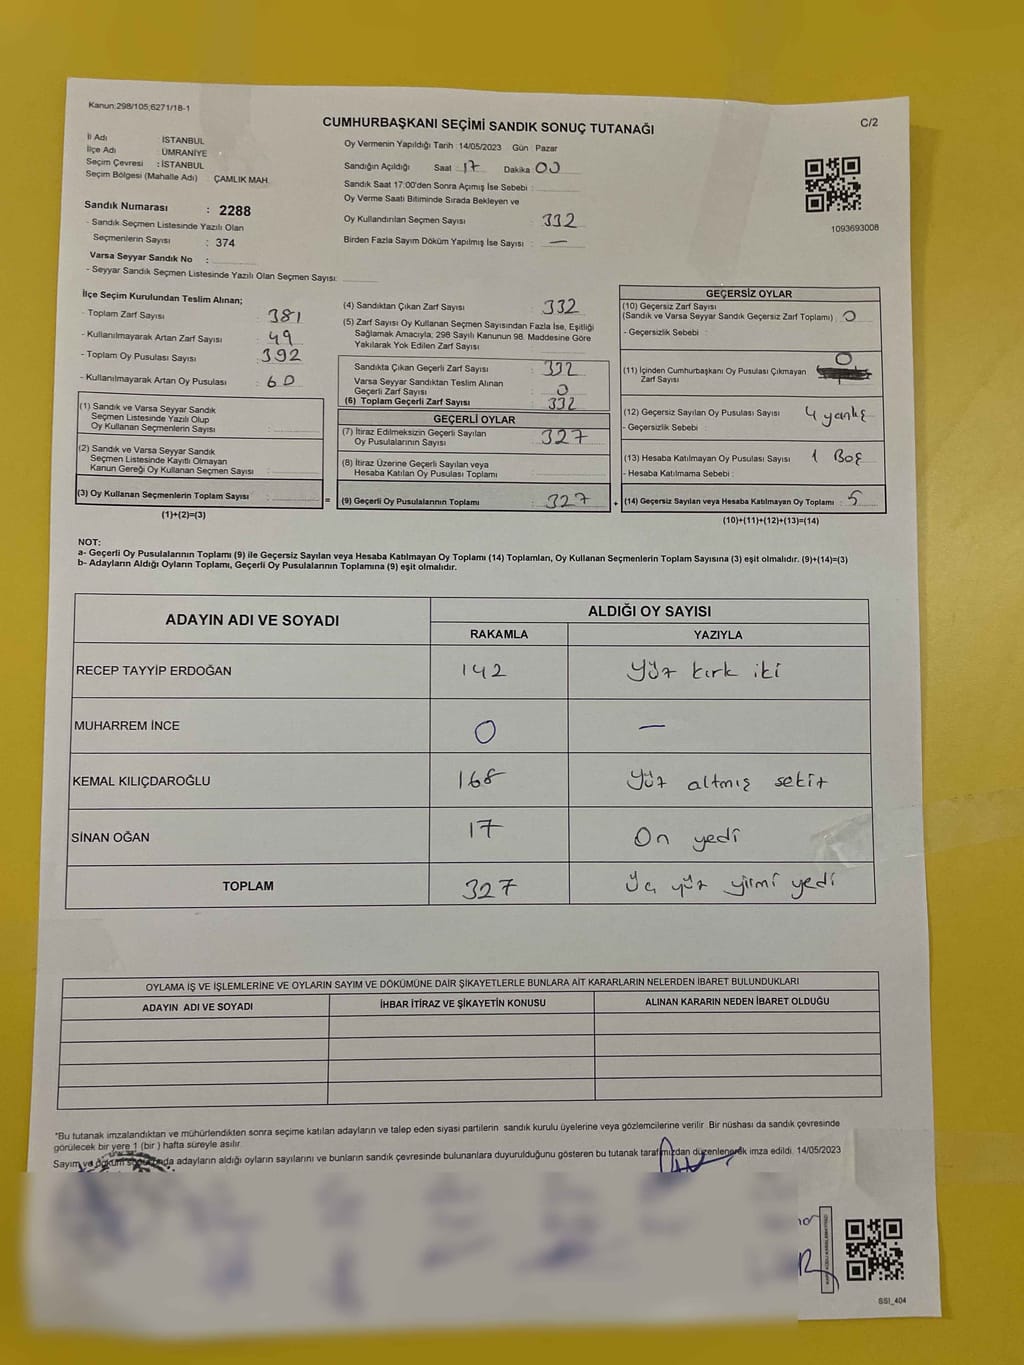 Kanun:298/105;6271/18-1
CUMHURBAŞKANI SEÇİMİ SANDIK SONUÇ TUTANAĞI
C/2
İl Adı İSTANBUL
İlçe Adı : ÜMRANİYE
Seçim Çevresi : İSTANBUL
Seçim Bölgesi (Mahalle Adı) : ÇAMLIK MAH.
Sandık Numarası : 2288
- Sandık Seçmen Listesinde Yazılı Olan
Seçmenlerin Sayısı : 374
Varsa Seyyar Sandık No :
- Seyyar Sandık Seçmen Listesinde Yazılı Olan Seçmen Sayısı:
Oy Vermenin Yapıldığı Tarih : 14/05/2023 Gün : Pazar
Sandığın Açıldığı Saat : 17 Dakika : 00
Sandık Saat 17:00'den Sonra Açımış İse Sebebi :
Oy Verme Saati Bitiminde Sırada Bekleyen ve
Oy Kullandırılan Seçmen Sayısı : 332
Birden Fazla Sayım Döküm Yapılmış İse Sayısı : —
1093693008
İlçe Seçim Kurulundan Teslim Alınan;
- Toplam Zarf Sayısı : 381
- Kullanılmayarak Artan Zarf Sayısı : 49
- Toplam Oy Pusulası Sayısı : 392
- Kullanılmayarak Artan Oy Pusulası : 60
(1) Sandık ve Varsa Seyyar Sandık
Seçmen Listesinde Yazılı Olup
Oy Kullanan Seçmenlerin Sayısı :
(2) Sandık ve Varsa Seyyar Sandık
Seçmen Listesinde Kayıtlı Olmayan
Kanun Gereği Oy Kullanan Seçmen Sayısı :
(3) Oy Kullanan Seçmenlerin Toplam Sayısı :
(1)+(2)=(3)
(4) Sandıktan Çıkan Zarf Sayısı : 332
(5) Zarf Sayısı Oy Kullanan Seçmen Sayısından Fazla İse, Eşitliği
Sağlamak Amacıyla; 298 Sayılı Kanunun 98. Maddesine Göre
Yakılarak Yok Edilen Zarf Sayısı :
Sandıkta Çıkan Geçerli Zarf Sayısı : 332
Varsa Seyyar Sandıktan Teslim Alınan
Geçerli Zarf Sayısı : 0
(6) Toplam Geçerli Zarf Sayısı : 332
GEÇERLİ OYLAR
(7) İtiraz Edilmeksizin Geçerli Sayılan
Oy Pusulalarının Sayısı : 327
(8) İtiraz Üzerine Geçerli Sayılan veya
Hesaba Katılan Oy Pusulası Toplamı :
= (9) Geçerli Oy Pusulalarının Toplamı : 327 +
GEÇERSİZ OYLAR
(10) Geçersiz Zarf Sayısı
(Sandık ve Varsa Seyyar Sandık Geçersiz Zarf Toplamı) : 0
- Geçersizlik Sebebi :
0
(11) İçinden Cumhurbaşkanı Oy Pusulası Çıkmayan
Zarf Sayısı
(12) Geçersiz Sayılan Oy Pusulası Sayısı : 4 yanlış
- Geçersizlik Sebebi :
(13) Hesaba Katılmayan Oy Pusulası Sayısı : 1 Boş
- Hesaba Katılmama Sebebi :
(14) Geçersiz Sayılan veya Hesaba Katılmayan Oy Toplamı : 5
(10)+(11)+(12)+(13)=(14)
NOT:
a- Geçerli Oy Pusulalarının Toplamı (9) ile Geçersiz Sayılan veya Hesaba Katılmayan Oy Toplamı (14) Toplamları, Oy Kullanan Seçmenlerin Toplam Sayısına (3) eşit olmalıdır. (9)+(14)=(3)
b- Adayların Aldığı Oyların Toplamı, Geçerli Oy Pusulalarının Toplamına (9) eşit olmalıdır.
ADAYIN ADI VE SOYADI ALDIĞI OY SAYISI
RAKAMLA YAZIYLA
RECEP TAYYİP ERDOĞAN 142 Yüz kırk iki
MUHARREM İNCE 0 —
KEMAL KILIÇDAROĞLU 168 Yüz altmış sekiz
SİNAN OĞAN 17 On yedi
TOPLAM 327 Üç yüz yirmi yedi
OYLAMA İŞ VE İŞLEMLERİNE VE OYLARIN SAYIM VE DÖKÜMÜNE DAİR ŞİKAYETLERLE BUNLARA AİT KARARLARIN NELERDEN İBARET BULUNDUKLARI
ADAYIN ADI VE SOYADI İHBAR İTİRAZ VE ŞİKAYETİN KONUSU ALINAN KARARIN NEDEN İBARET OLDUĞU
*Bu tutanak imzalandıktan ve mühürlendikten sonra seçime katılan adayların ve talep eden siyasi partilerin sandık kurulu üyelerine veya gözlemcilerine verilir. Bir nüshası da sandık çevresinde
görülecek bir yere 1 (bir ) hafta süreyle asılır.
Sayım ve döküm sonucunda adayların aldığı oyların sayılarını ve bunların sandık çevresinde bulunanlara duyurulduğunu gösteren bu tutanak tarafımızdan düzenlenerek imza edildi. 14/05/2023
SSI_404